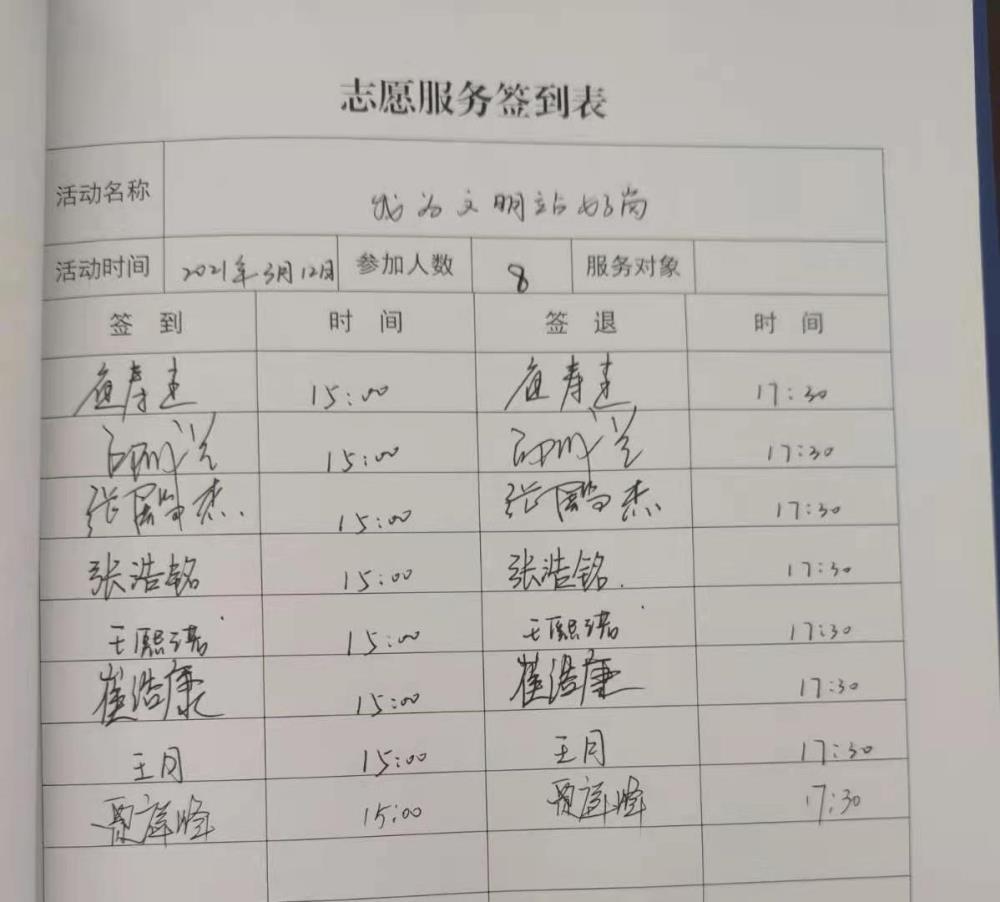 志愿服务签到表
活动名称 我为文明站好岗
活动时间 2021年3月12日 参加人数 8 服务对象
签到 时间 签退 时间
15:00 17:30
15:00 17:30
15:00 17:30
张浩铭 15:00 张浩铭. 17:30
王熙诺 15:00 王熙诺 17:30
崔浩康 15:00 崔浩康 17:30
王月 15:00 王月 17:30
15:00 17:30